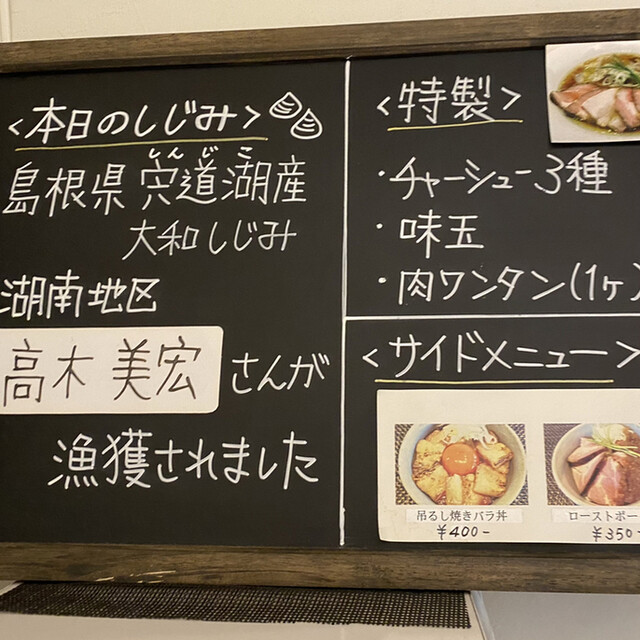 <本日のしじみ>
しんじこ
島根県宍道湖産
大和しじみ
湖南地区
高木美宏さんが
漁獲されました
<特製>
・チャーシュー3種
・味玉
・肉ワンタン(1ヶ)
<サイドメニュー>
吊るし焼きバラ丼
¥400-
ローストポー
¥350-